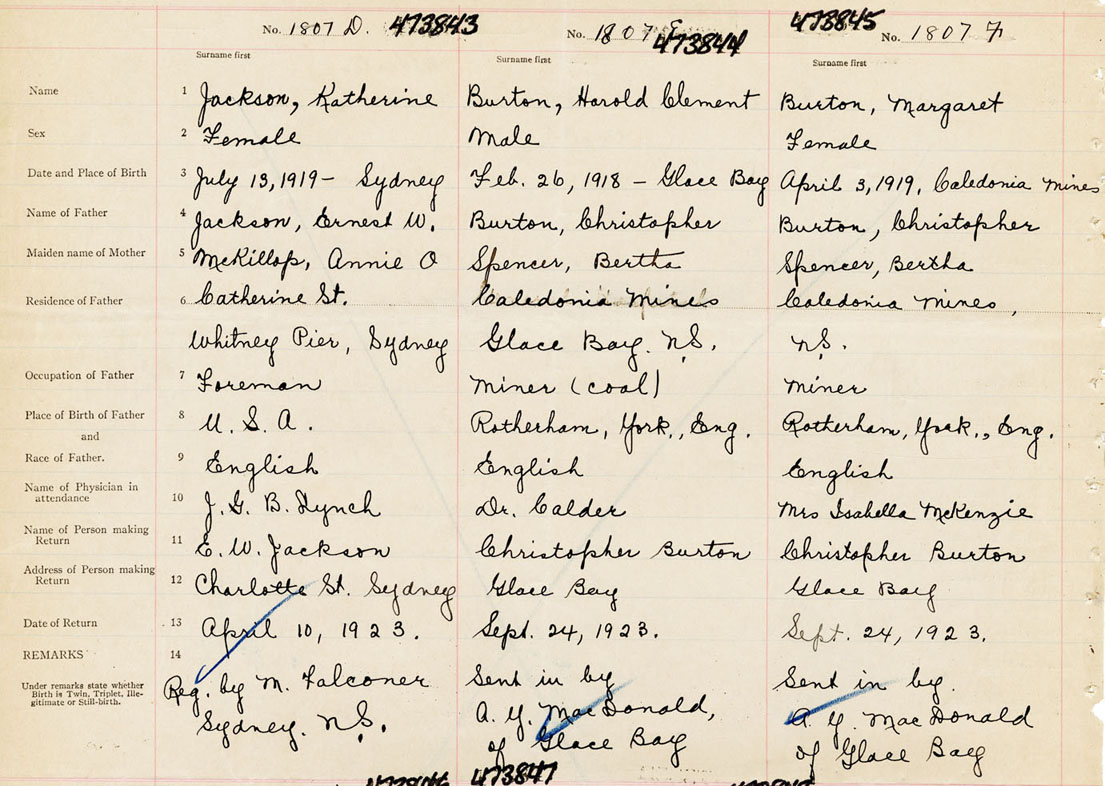 No. 1807 D. 473843 No. 1807 E 473844 473845 No. 1807 F
Surname first Surname first Surname first
Name 1 Jackson, Katherine Burton, Harold Clement Burton, Margaret
Sex 2 Female Male Female
Date and Place of Birth 3 July 13, 1919 - Sydney Feb. 26, 1918 - Glace Bay April 3, 1919, Caledonia Mines
Name of Father 4 Jackson, Ernest W. Burton, Christopher Burton, Christopher
Maiden name of Mother 5 McKillop, Annie O Spencer, Bertha Spencer, Bertha
Residence of Father 6 Catherine St. Caledonia Mines Caledonia Mines,
Whitney Pier, Sydney Glace Bay. N.S. N.S.
Occupation of Father 7 Foreman Miner (coal) Miner
Place of Birth of Father 8 U. S. A. Rotherham, York., Eng. Rotherham, York., Eng.
and
Race of Father. 9 English English English
Name of Physician in
attendance 10 J. G. B. Lynch Dr. Calder Mrs Isabella McKenzie
Name of Person making
Return 11 E. W. Jackson Christopher Burton Christopher Burton
Address of Person making
Return 12 Charlotte St. Sydney Glace Bay Glace Bay
Date of Return 13 April 10, 1923. Sept. 24, 1923. Sept. 24, 1923.
REMARKS 14
Under remarks state whether
Birth is Twin, Triplet, Ille-
gitimate or Still-birth.
Reg. by M. Falconer Sent in by Sent in by.
Sydney. N.S. A. Y. MacDonald, A. Y. MacDonald
of Glace Bay of Glace Bay
473847